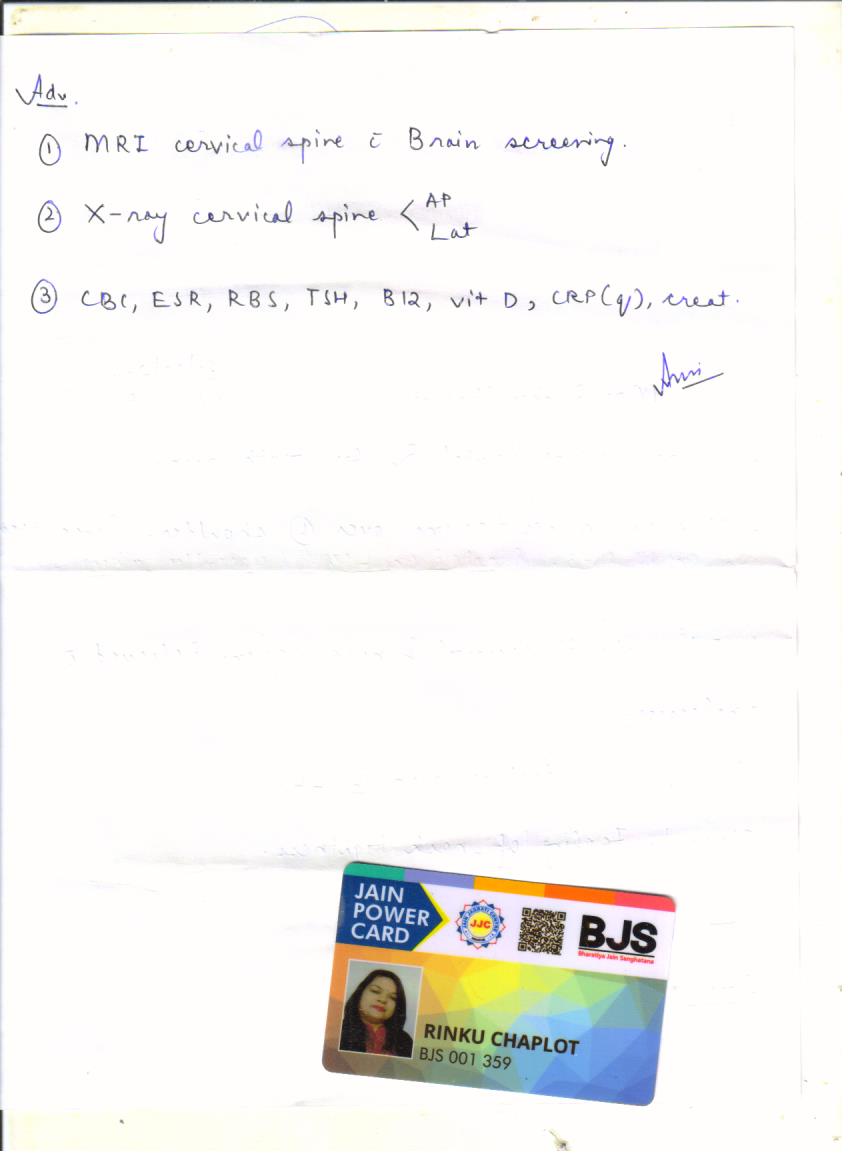 Adv.
① MRI cervical spine c̄ Brain screening.
② X-ray cervical spine < AP
Lat
③ CBC, ESR, RBS, TSH, B12, vit D, CRP(q), creat.
JAIN
POWER
CARD
JJC
BJS
Bharatiya Jain Sanghatana
RINKU CHAPLOT
BJS 001 359